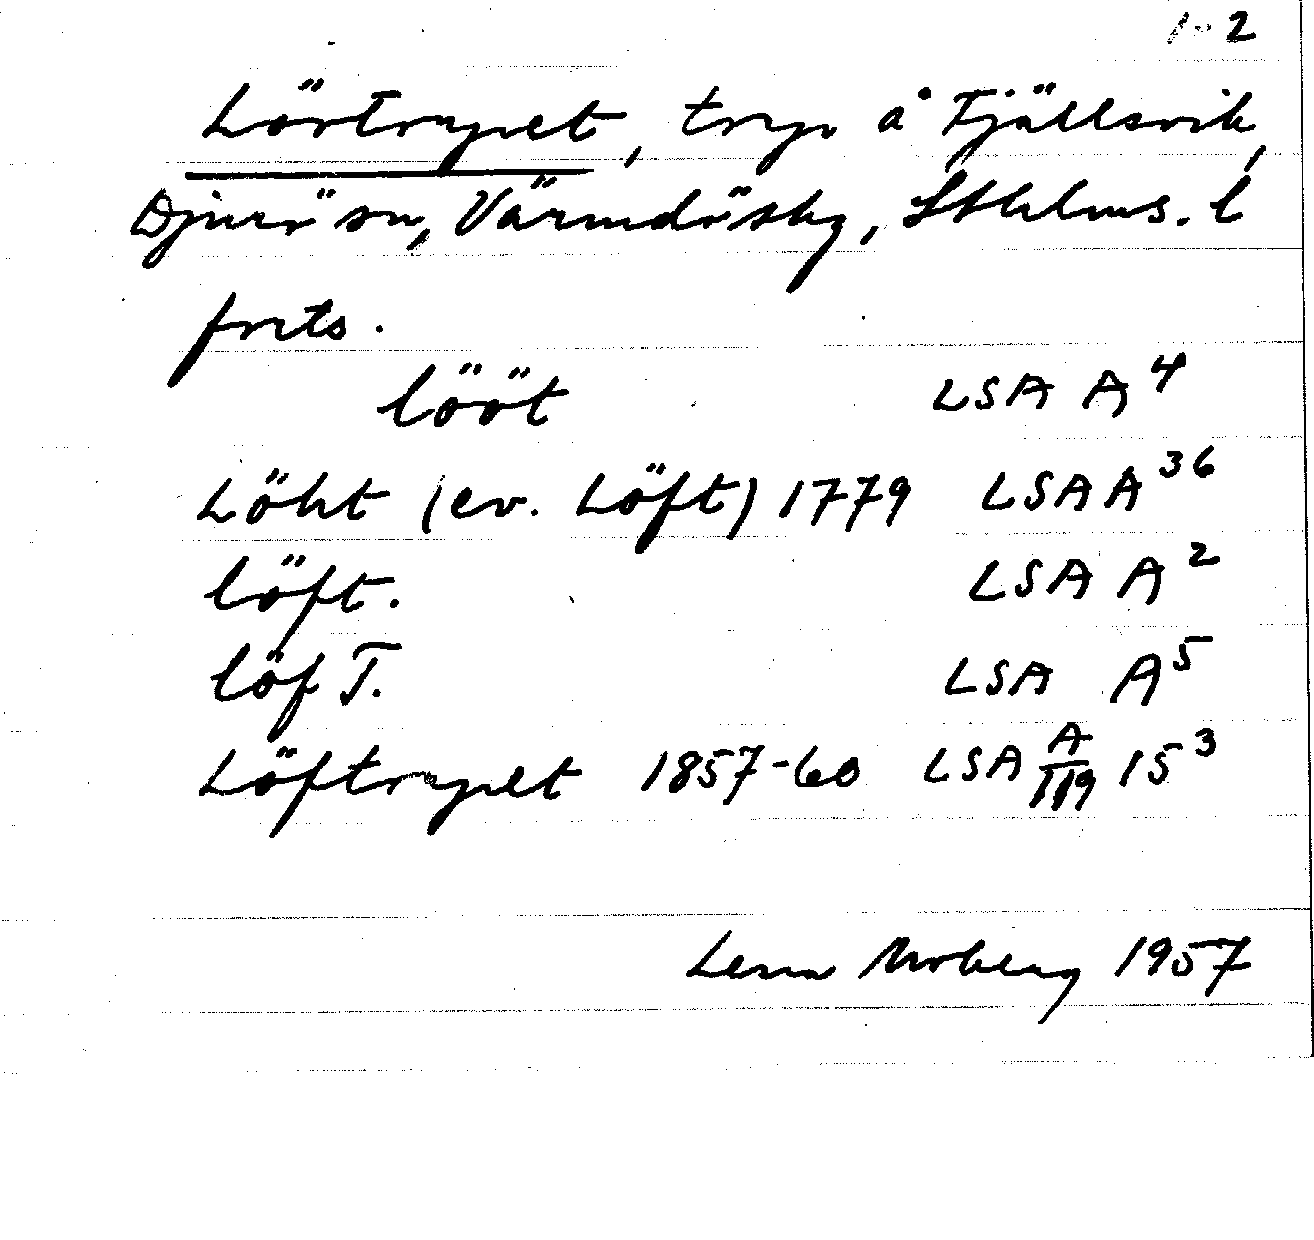 1-2
Lövtorpet, torp å Fjällsvik,
Djurö sn, Värmdö skg, Sthlms. l
forts.
lööt LSA A4
Löht (ev. Löft) 1779 LSA A36
löft. LSA A2
löf T. LSA A5
Löftorpet 1857-60 LSA A/119 15 3
Lena Moberg 1957